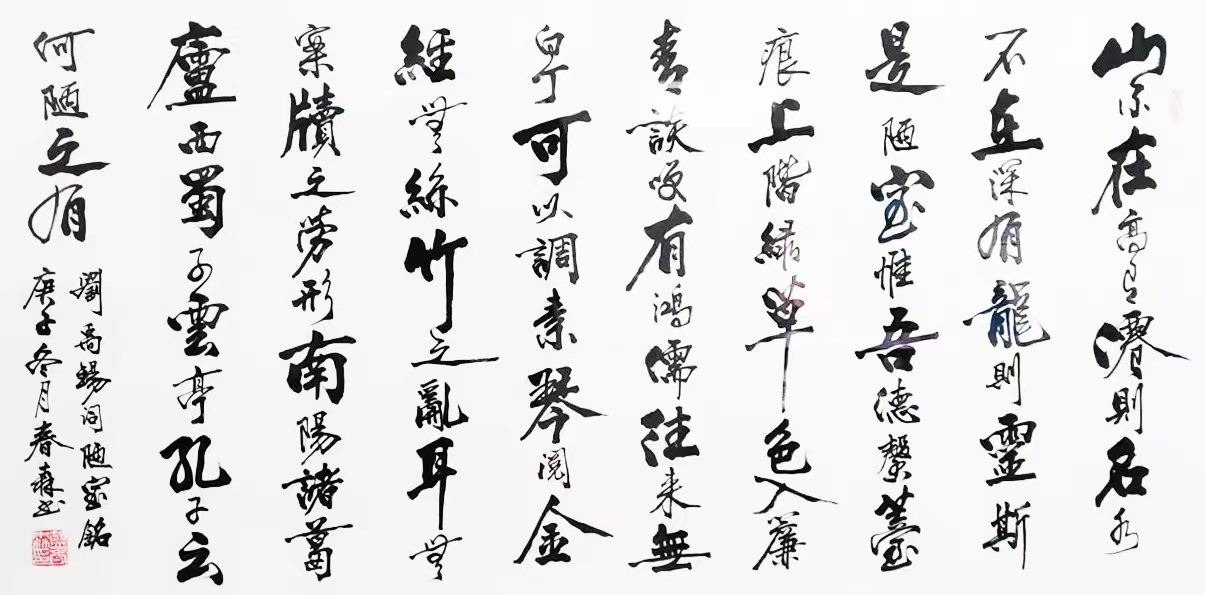 山不在高有僊則名水
不在深有龍則靈斯
是陋室惟吾德馨薹
痕上階緑草色入簾
青談笑有鴻儒往来無
白丁可以調素琴閲金
經無絲竹之亂耳無
案牘之勞形南陽諸葛
廬西蜀子雲亭孔子云
何陋之有
劉禹錫詞陋室銘
庚子冬月春森书